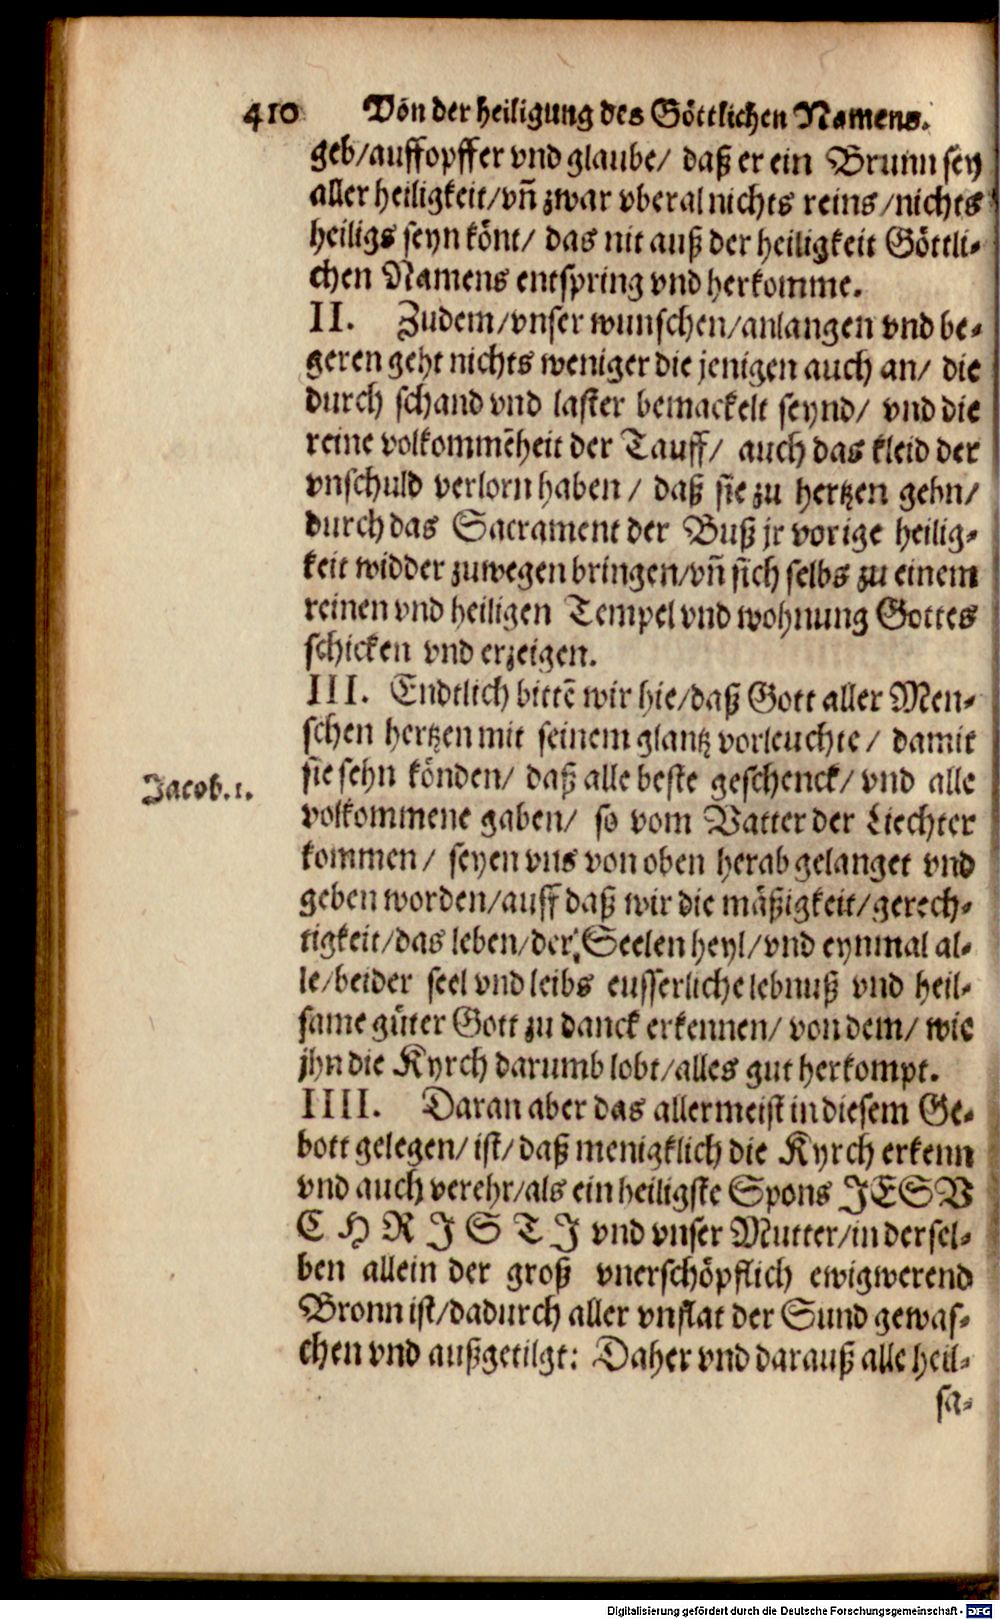 410 Von der heiligung des Göttlichen Namens.
geb/auffopffer vnd glaube/ daß er ein Brunn sey
aller heiligkeit/vñ zwar vberal nichts reins/nichts
heiligs seyn könt/ das nit auß der heiligkeit Göttli-
chen Namens entspring vnd herkomme.
II. Zudem/vnser wunschen/anlangen vnd be-
geren geht nichts weniger die jenigen auch an/ die
durch schand vnd laster bemackelt seynd/ vnd die
reine volkommẽheit der Tauff/ auch das kleid der
vnschuld verlorn haben/ daß sie zu hertzen gehn/
durch das Sacrament der Buß jr vorige heilig-
keit widder zuwegen bringen/vñ sich selbs zu einem
reinen vnd heiligen Tempel vnd wohnung Gottes
schicken vnd erzeigen.
III. Endtlich bittẽ wir hie/daß Gott aller Men-
schen hertzen mit seinem glantz vorleuchte/ damit
sie sehn könden/ daß alle beste geschenck/ vnd alle
Jacob.1.
volkommene gaben/ so vom Vatter der Liechter
kommen/ seyen vns von oben herab gelanget vnd
geben worden/auff daß wir die mäßigkeit/gerech-
tigkeit/das leben/der Seelen heyl/vnd eynmal al-
le/beider seel vnd leibs eusserliche lebnuß vnd heil-
same güter Gott zu danck erkennen/ von dem/ wie
jhn die Kyrch darumb lobt/alles gut herkompt.
IIII. Daran aber das allermeist in diesem Ge-
bott gelegen/ ist/ daß menigklich die Kyrch erkenn
vnd auch verehr/als ein heiligste Spons JESV
CHRISTI vnd vnser Mutter/in dersel-
ben allein der groß vnerschöpflich ewigwerend
Bronn ist/dadurch aller vnflat der Sund gewas-
chen vnd außgetilgt: Daher vnd darauß alle heil-
sa-
Digitalisierung gefördert durch die Deutsche Forschungsgemeinschaft - DFG